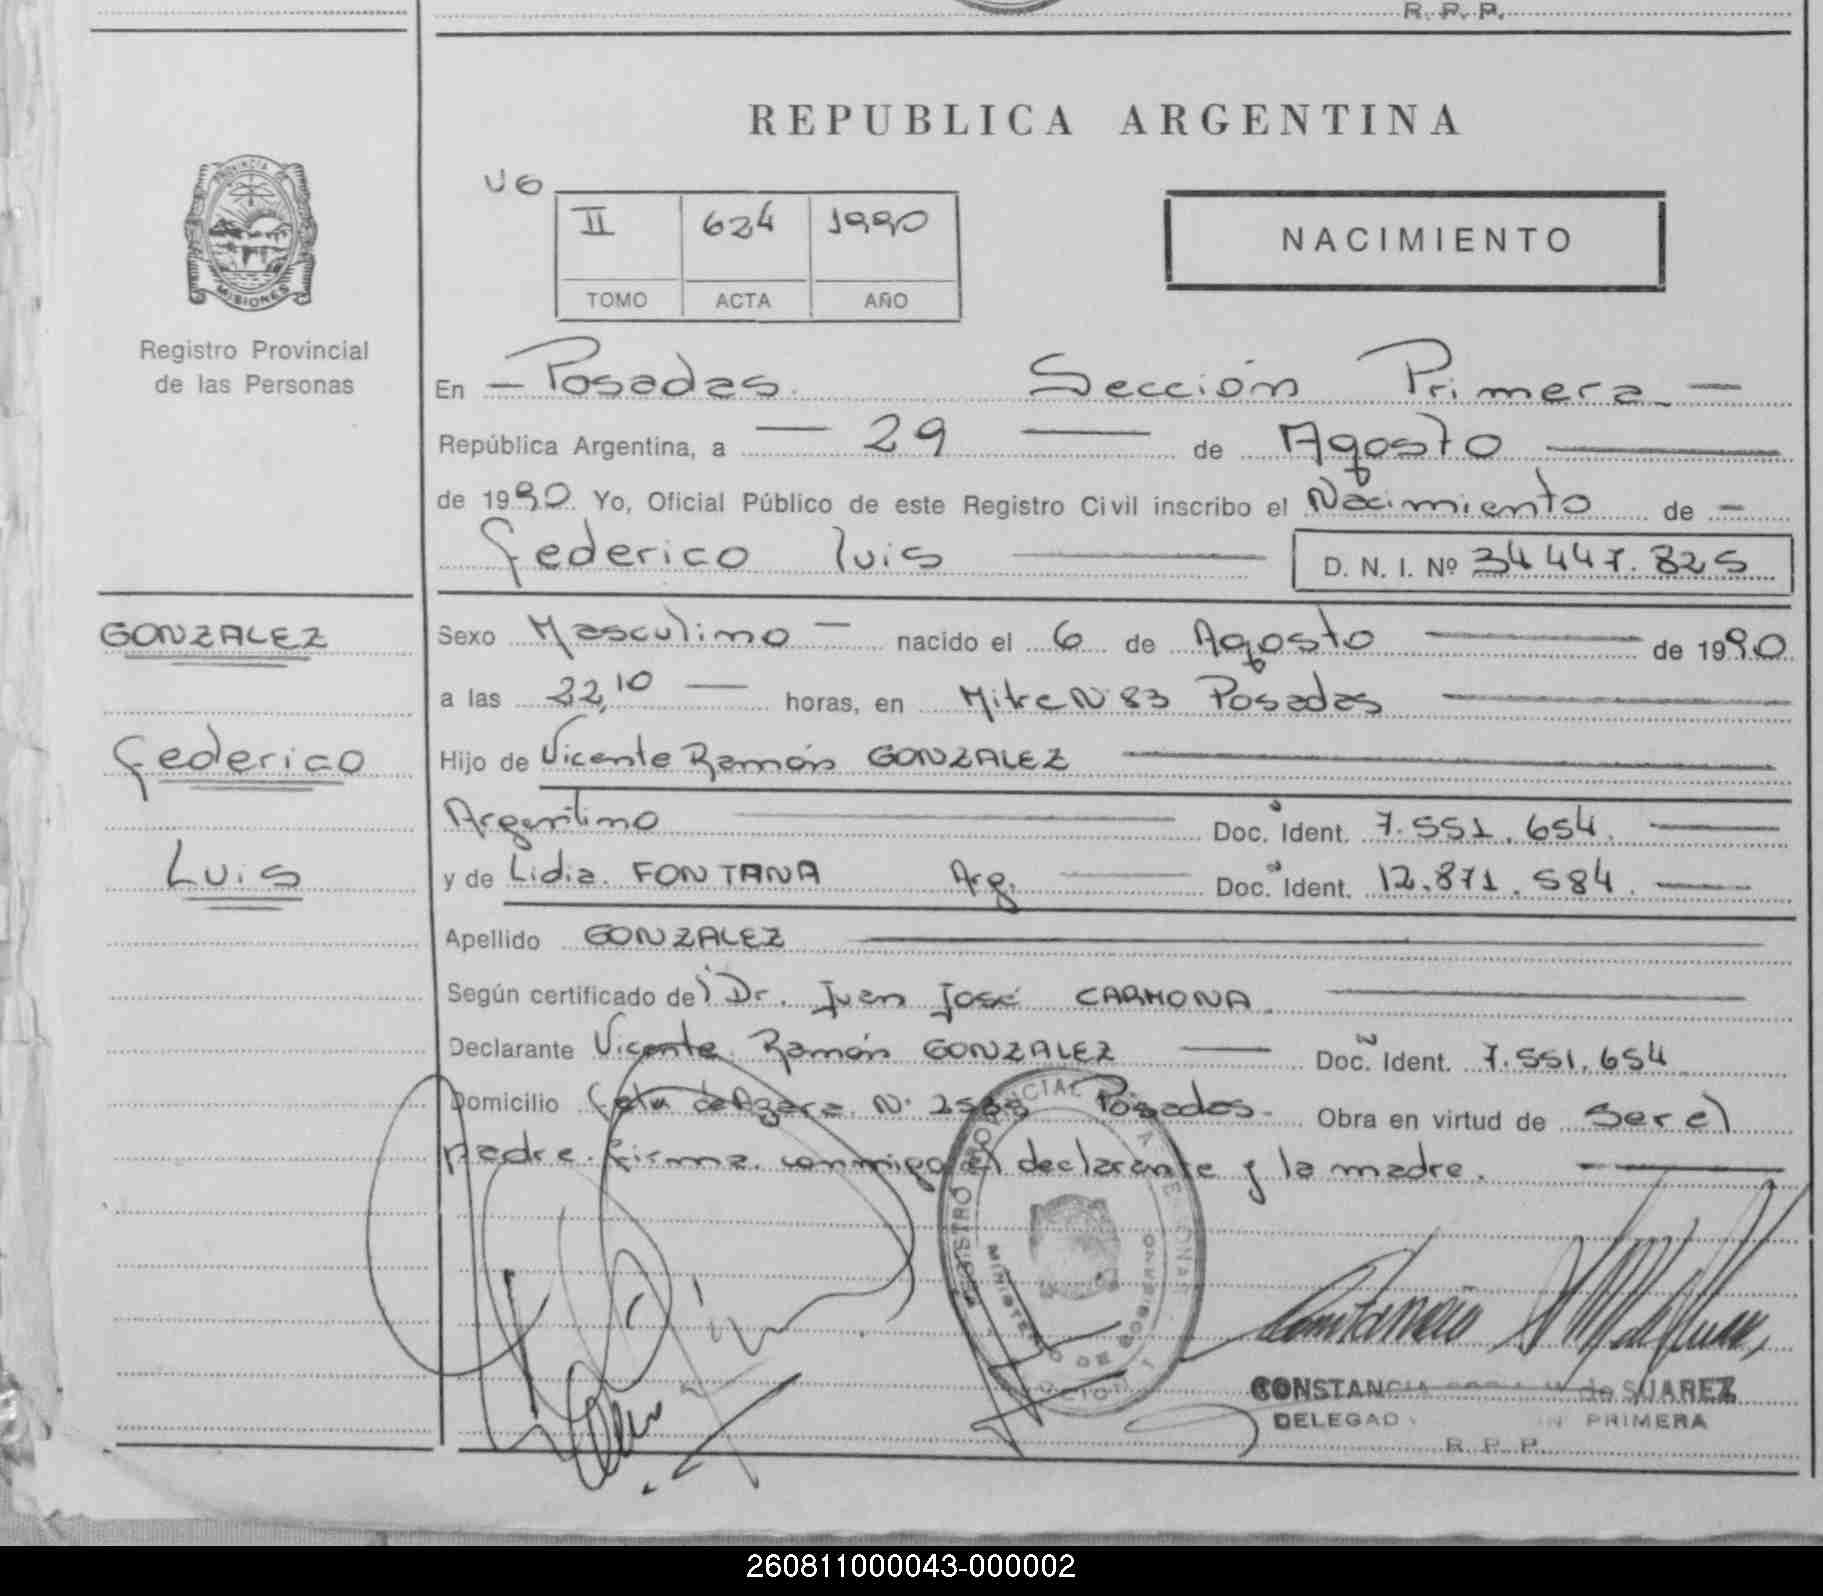 R. P. P.
REPUBLICA ARGENTINA
PROVINCIA DE
MISIONES
Registro Provincial
de las Personas
UG
II 624 1990
TOMO ACTA AÑO
NACIMIENTO
En — Posadas. Sección Primera —
República Argentina, a — 29 — de Agosto —
de 1990. Yo, Oficial Público de este Registro Civil inscribo el Nacimiento de —
Federico Luis — D. N. I. Nº 34 447.825
GONZALEZ
Federico
Luis
Sexo Masculino — nacido el 6 de Agosto — de 1990
a las 22,10 — horas, en Mitre Nº 83 Posadas —
Hijo de Vicente Ramón GONZALEZ —
Argentino — Doc. Ident. 7.551.654. —
y de Lidia FONTANA Arg. — Doc. Ident. 12.871.584. —
Apellido GONZALEZ —
Según certificado del Dr. Juan José CARMONA. —
Declarante Vicente Ramón GONZALEZ — Doc. Ident. 7.551.654
Domicilio de Azara Nº Posadas. Obra en virtud de ser el
padre. firma conmigo el declarante y la madre. —
REGISTRO PROVINCIAL DE LAS PERSONAS
MINISTERIO DE GOBIERNO
CONSTANCIA de SUAREZ
DELEGAD PRIMERA
R. P. P.
260811000043-000002